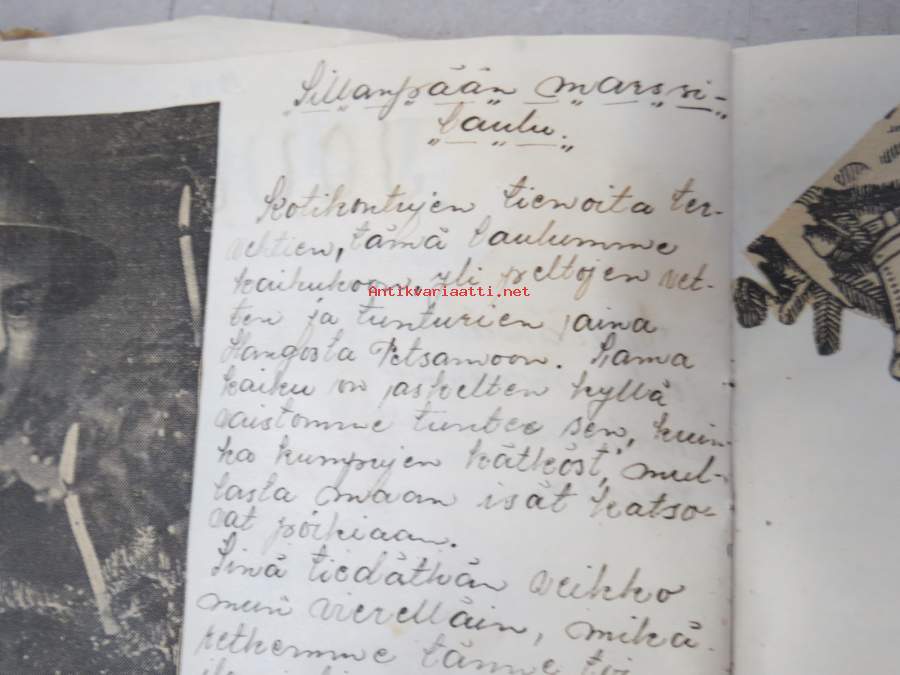 Sillanpään marssi-
laulu.
Kotikontujen tienoita ter-
vehtien, tämä laulumme
kaikukoon, yli peltojen vet-
ten ja tunturien aina
Hangosta Petsamoon. Sama
kaiku on askelten kyllä
vaistomme tuntee sen, kuin-
ka kumpujen kätköst, mul-
lasta maan isät katso-
vat poikiaan.
Sinä tiedäthän veikko
mun vierelläin, mikä
retkemme tänne toi
Antikvariaatti.net